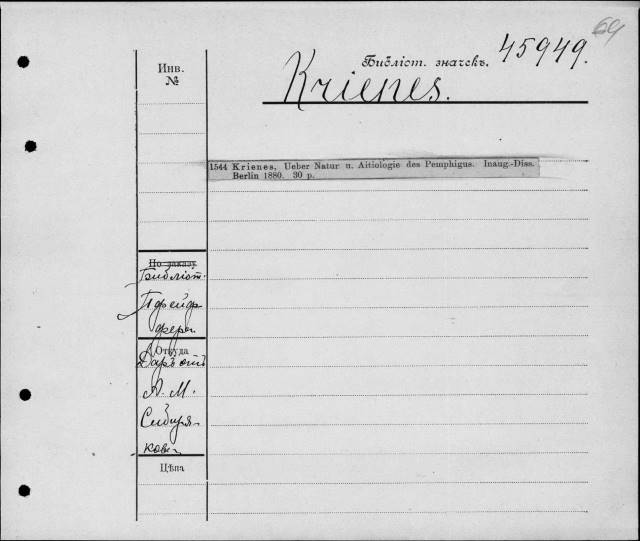 69
Библіот. значекъ. 45949.
Инв.
№
Krienes.
1544 Krienes, Ueber Natur u. Aitiologie des Pemphigus. Inaug.-Diss.
Berlin 1880. 30 p.
По заказу
Библіот.
Пфейф
фера
Откуда
Даръ отъ
А. М.
Сибиря-
кова
Цѣна